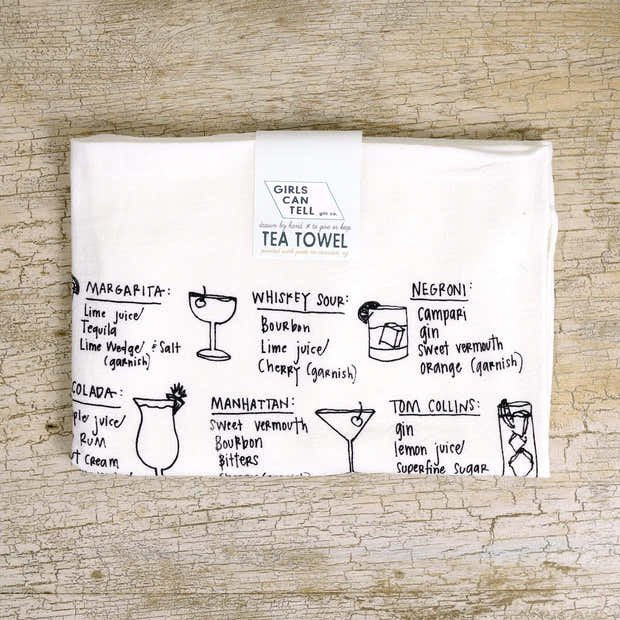 GIRLS
CAN
TELL
gift co.
drawn by hand to give or keep
TEA TOWEL
MARGARITA:
Lime juice/
Tequila
Lime Wedge/ & Salt
(garnish)
WHISKEY SOUR:
Bourbon
Lime juice/
Cherry (garnish)
NEGRONI:
Campari
gin
sweet vermouth
orange (garnish)
COLADA:
juice/
RUM
Cream
MANHATTAN:
Sweet vermouth
Bourbon
Bitters
TOM COLLINS:
gin
lemon juice/
superfine sugar